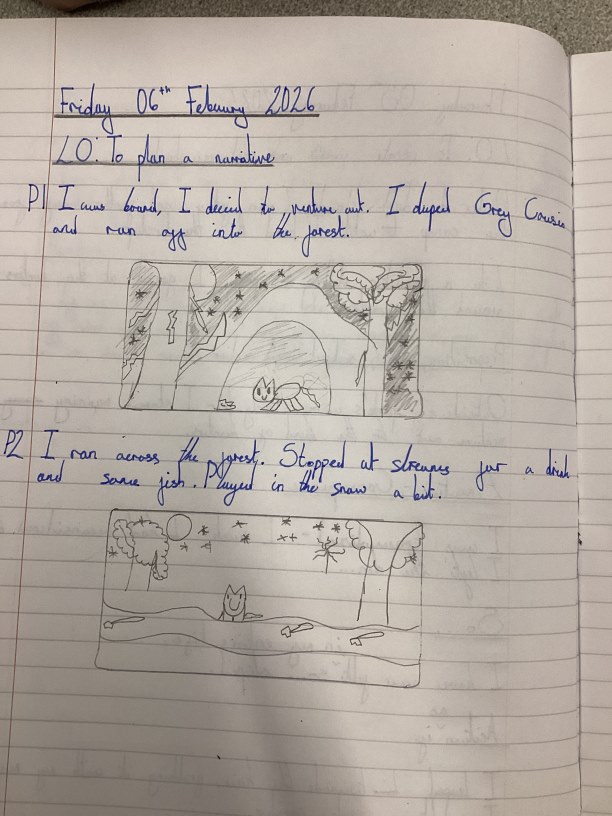 Friday 06th Febuary 2026
LO: To plan a narrative
P1 I was board, I decied to venture out. I duped Grey Cousin
and run off into the forest.
P2 I ran across the forest. Stopped at streams for a drink
and some fish. Played in the snow a bit.